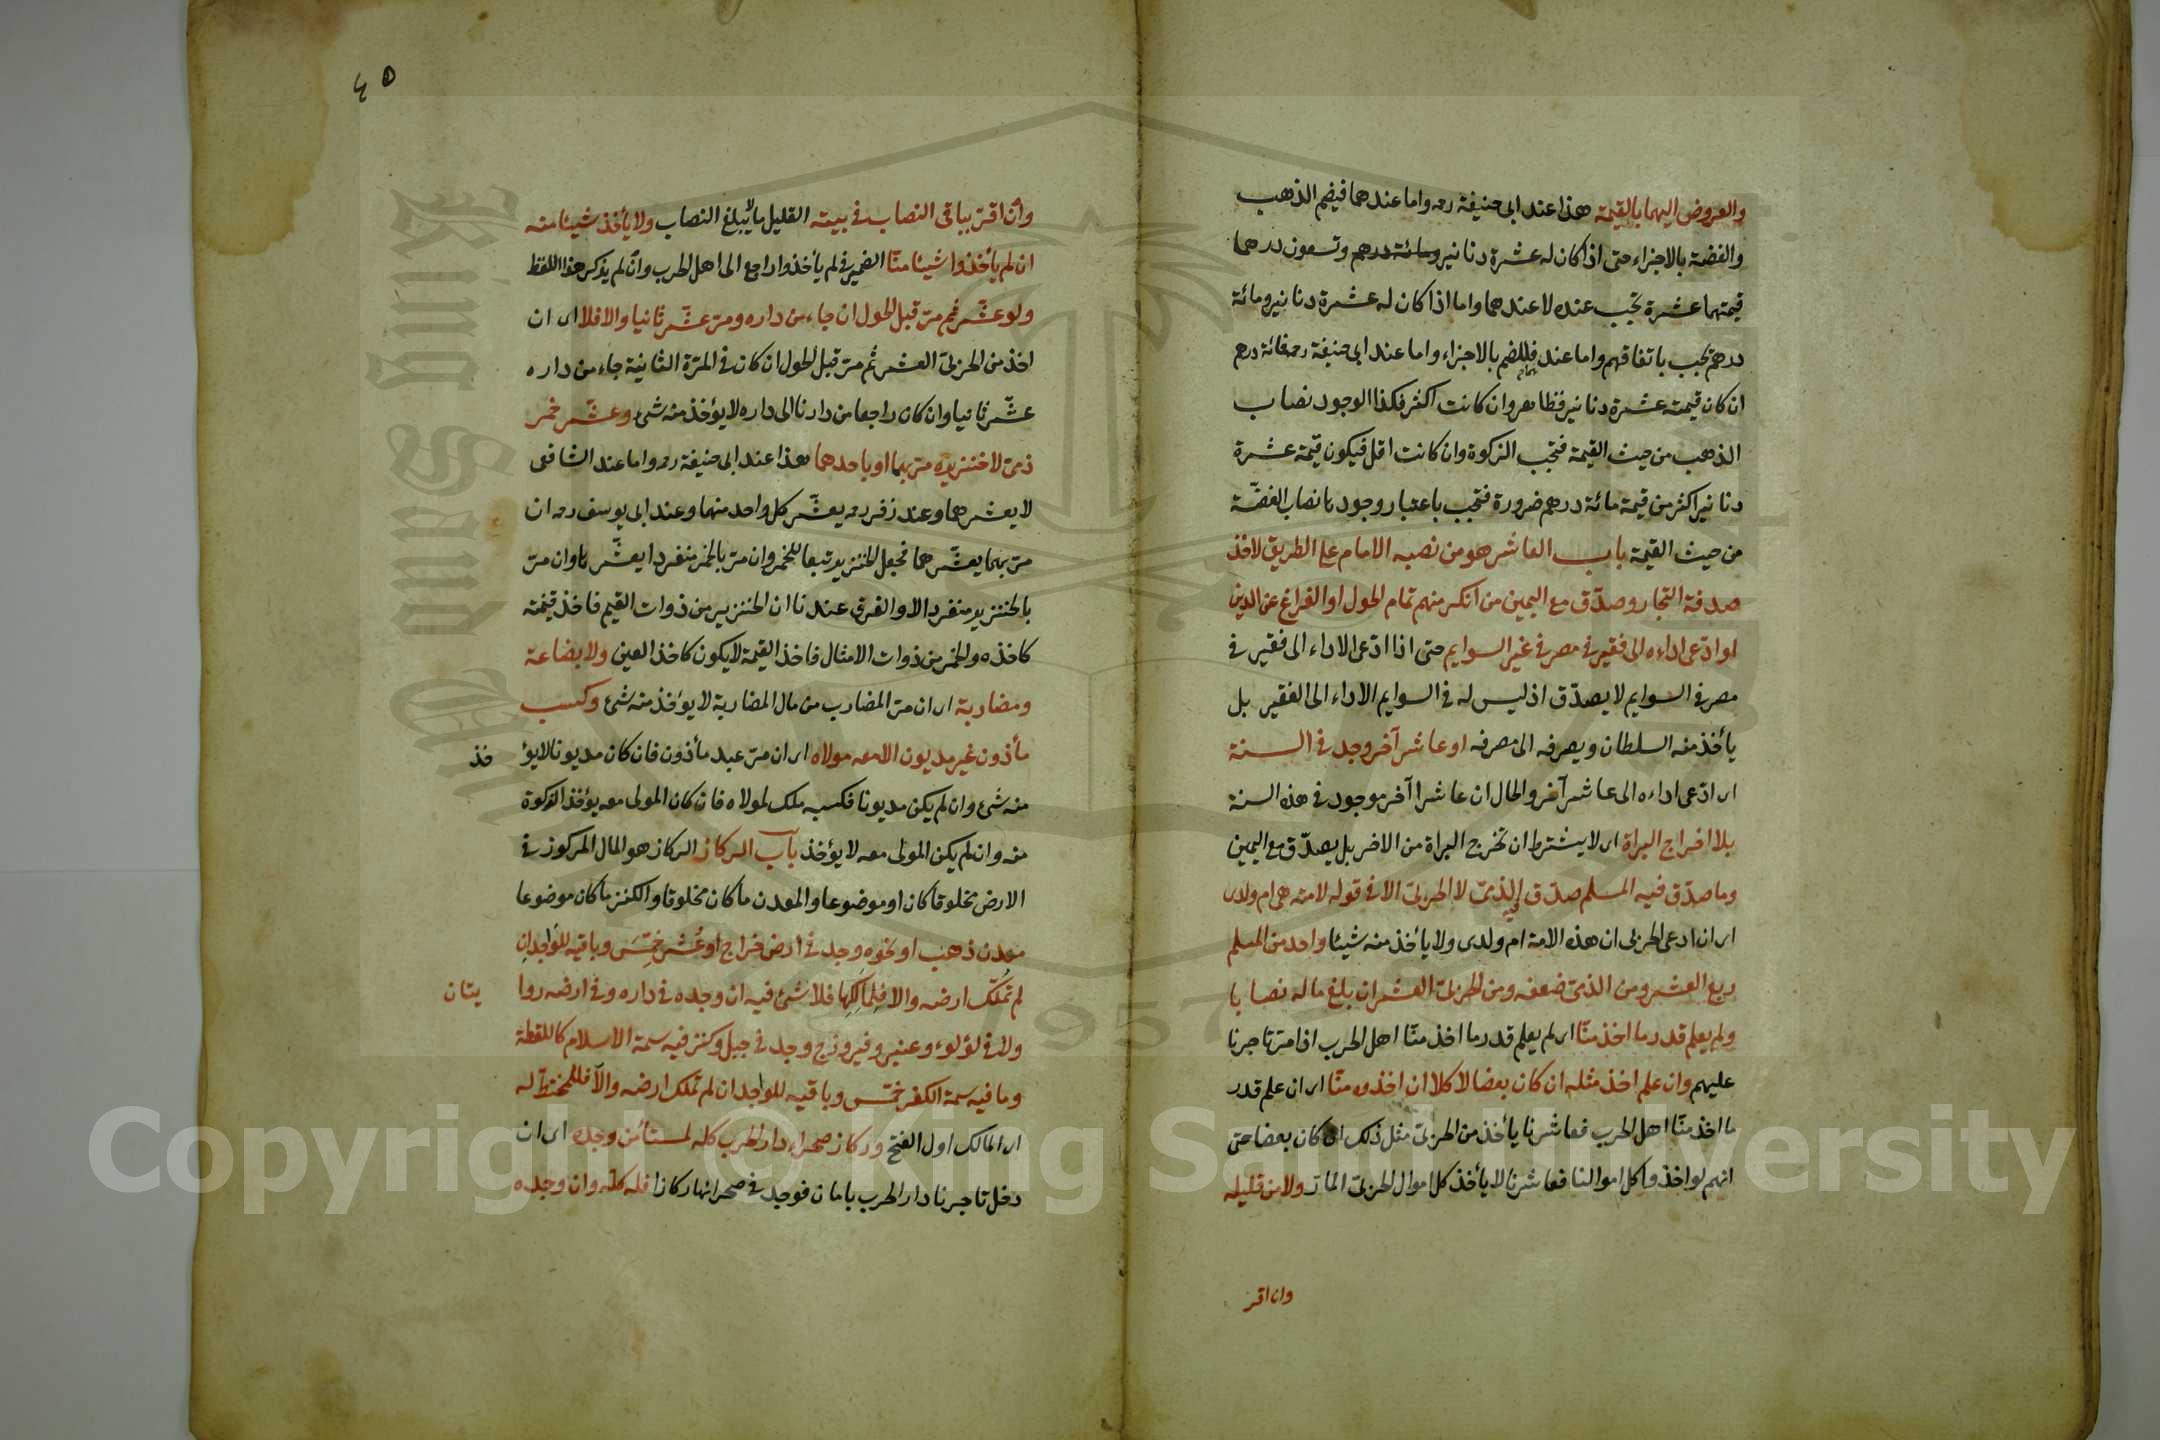 والعروض اليهما بالقيمة هذا عند ابى حنيفة رحه واما عندهما فيضم الذهب
والفضة بالاجزاء حتى اذا كان له عشرة دنانير ومائة درهم وتسعون درهما
قيمتهما عشرة تجب عنده لا عندهما واما اذا كان له عشرة دنانير ومائة
درهم تجب باتفاقهم واما عندهما فللضم بالاجزاء واما عند ابى حنيفة رحه فمائة درهم
ان كان قيمته عشرة دنانير فظاهر وان كانت اكثر فكذا لوجود نصاب
الذهب من حيث القيمة فتجب الزكوة وان كانت اقل فيكون قيمة عشرة
دنانير اكثر من قيمة مائة درهم ضرورة فتجب باعتبار وجود نصاب الفضة
من حيث القيمة باب العاشر هو من نصبه الامام على الطريق لاخذ
صدقة التجار وصدّق مع اليمين من انكر منهم تمام الحول او الفراغ عن الدين
او ادّعى اداءه الى فقير فى مصر فى غير السوايم حتى اذا ادّعى الاداء الى فقير فى
مصر فى السوايم لا يصدّق اذ ليس له فى السوايم الاداء الى الفقير بل
يأخذ منه السلطان ويصرفه الى مصرفه او عاشر آخر وجد فى السنة
اى ادّعى اداءه الى عاشر آخر والحال ان عاشرا آخر موجود فى هذه السنة
بلا اخراج البراة اى لا يشترط ان تخرج البراة من الاخر بل يصدّق مع اليمين
وما صدّق فيه المسلم صدّق فيه الذمىّ لا الحربىّ الا فى قوله لامته هى ام ولدى
اى ان ادعى الحربى ان هذه الامة ام ولدى ولا يأخذ منه شيئا واخذ من المسلم
ربع العشر ومن الذمىّ ضعفه ومن الحربىّ العشر ان بلغ ماله نصابا
ولم يعلم قدر ما اخذ منّا اى لم يعلم قدر ما اخذ منّا اهل الحرب اذا مرّ تاجرنا
عليهم وان علم اخذ مثله ان كان بعضا لا كلا ان اخذوه منّا اى ان علم قدر
ما اخذ منّا اهل الحرب فعاشرنا يأخذ من الحربىّ مثل ذلك ان كان بعضا حتى
انهم لو اخذوا كل اموالنا فعاشرنا لا يأخذ كل اموال الحربىّ المارّ ولا من قليله
وان اقرّ
٤٥
وان اقرّ بباقى النصاب فى بيته القليل ما لا يبلغ النصاب ولا يأخذ شيئا منه
ان لم يأخذوا شيئا منّا الضمير فى لم يأخذوا راجع الى اهل الحرب وان لم يذكر هذا اللفظ
ولو عشّر ثم مرّ قبل الحول ان جاء من داره ومرّ عشّر ثانيا والا فلا اى ان
اخذ من الحربىّ العشر ثم مرّ قبل الحول ان كان فى المرّة الثانية جاء من داره
عشّر ثانيا وان كان راجعا من دارنا الى داره لا يؤخذ منه شئ وعشّر خمر
ذمىّ لا خنزيره مرّ بهما او باحدهما هذا عند ابى حنيفة رحه واما عند الشافعى
لا يعشرهما وعند زفر رحه يعشّر كل واحد منهما وعند ابى يوسف رحه ان
مرّ بهما يعشّرهما فجعل الخنزير تبعا للخمر وان مرّ بالخمر منفردا يعشّرها وان مرّ
بالخنزير منفردا لا والفرق عندنا ان الخنزير من ذوات القيم فاخذ قيمته
كاخذه والخمر من ذوات الامثال فاخذ القيمة لا يكون كاخذ العين ولا بضاعة
ومضاربة اى ان مرّ المضارب من مال المضاربة لا يؤخذ منه شئ وكسب
مأذون غير مديون الا معه مولاه اى ان مرّ عبد مأذون فان كان مديونا لا يؤ
خذ
منه شئ وان لم يكن مديونا فكسبه ملك لمولاه فان كان المولى معه يؤخذ الزكوة
منه وان لم يكن المولى معه لا يؤخذ باب الركاز الركاز هو المال المركوز فى
الارض مخلوقا كان او موضوعا والمعدن ما كان مخلوقا والكنز ما كان موضوعا
معدن ذهب او نحوه وجد فى ارض خراج او عُشر خمّس وباقيه للواجد ان
لم تملك ارضه والا فلمالكها فلا شئ فيه ان وجده فى داره وفى ارضه روا
يتان
ولا فى لؤلؤ وعنبر وفيروزج وجد فى جبل وكنز فيه سمة الاسلام كاللقطة
وما فيه سمة الكفر خمّس وباقيه للواجد ان لم تملك ارضه والا فللمختطّ له
اى المالك اول الفتح وركاز صحراء دار الحرب كله لمستأمن وجده اى ان
دخل تاجرنا دار الحرب بامان فوجد فى صحرائها ركازا فله كله وان وجده
Copyright © King Saud University
1957